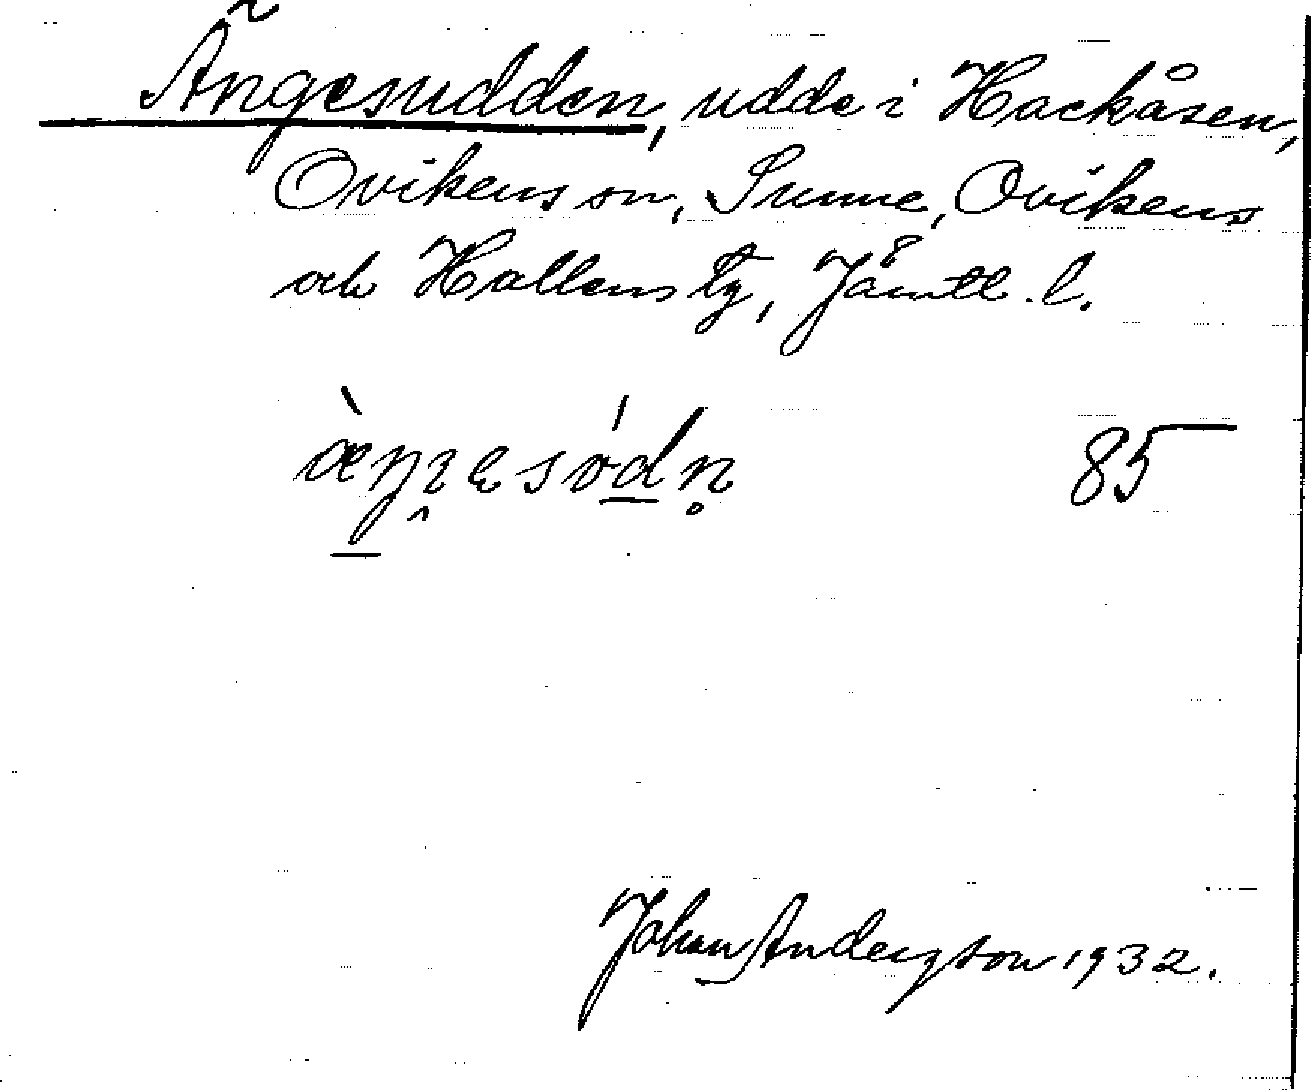 Ängesudden, udde i Hackåsen,
Ovikens sn, Sunne, Ovikens
och Hallens tg, Jämtl. l.
85
Johan Anderzson 1932.